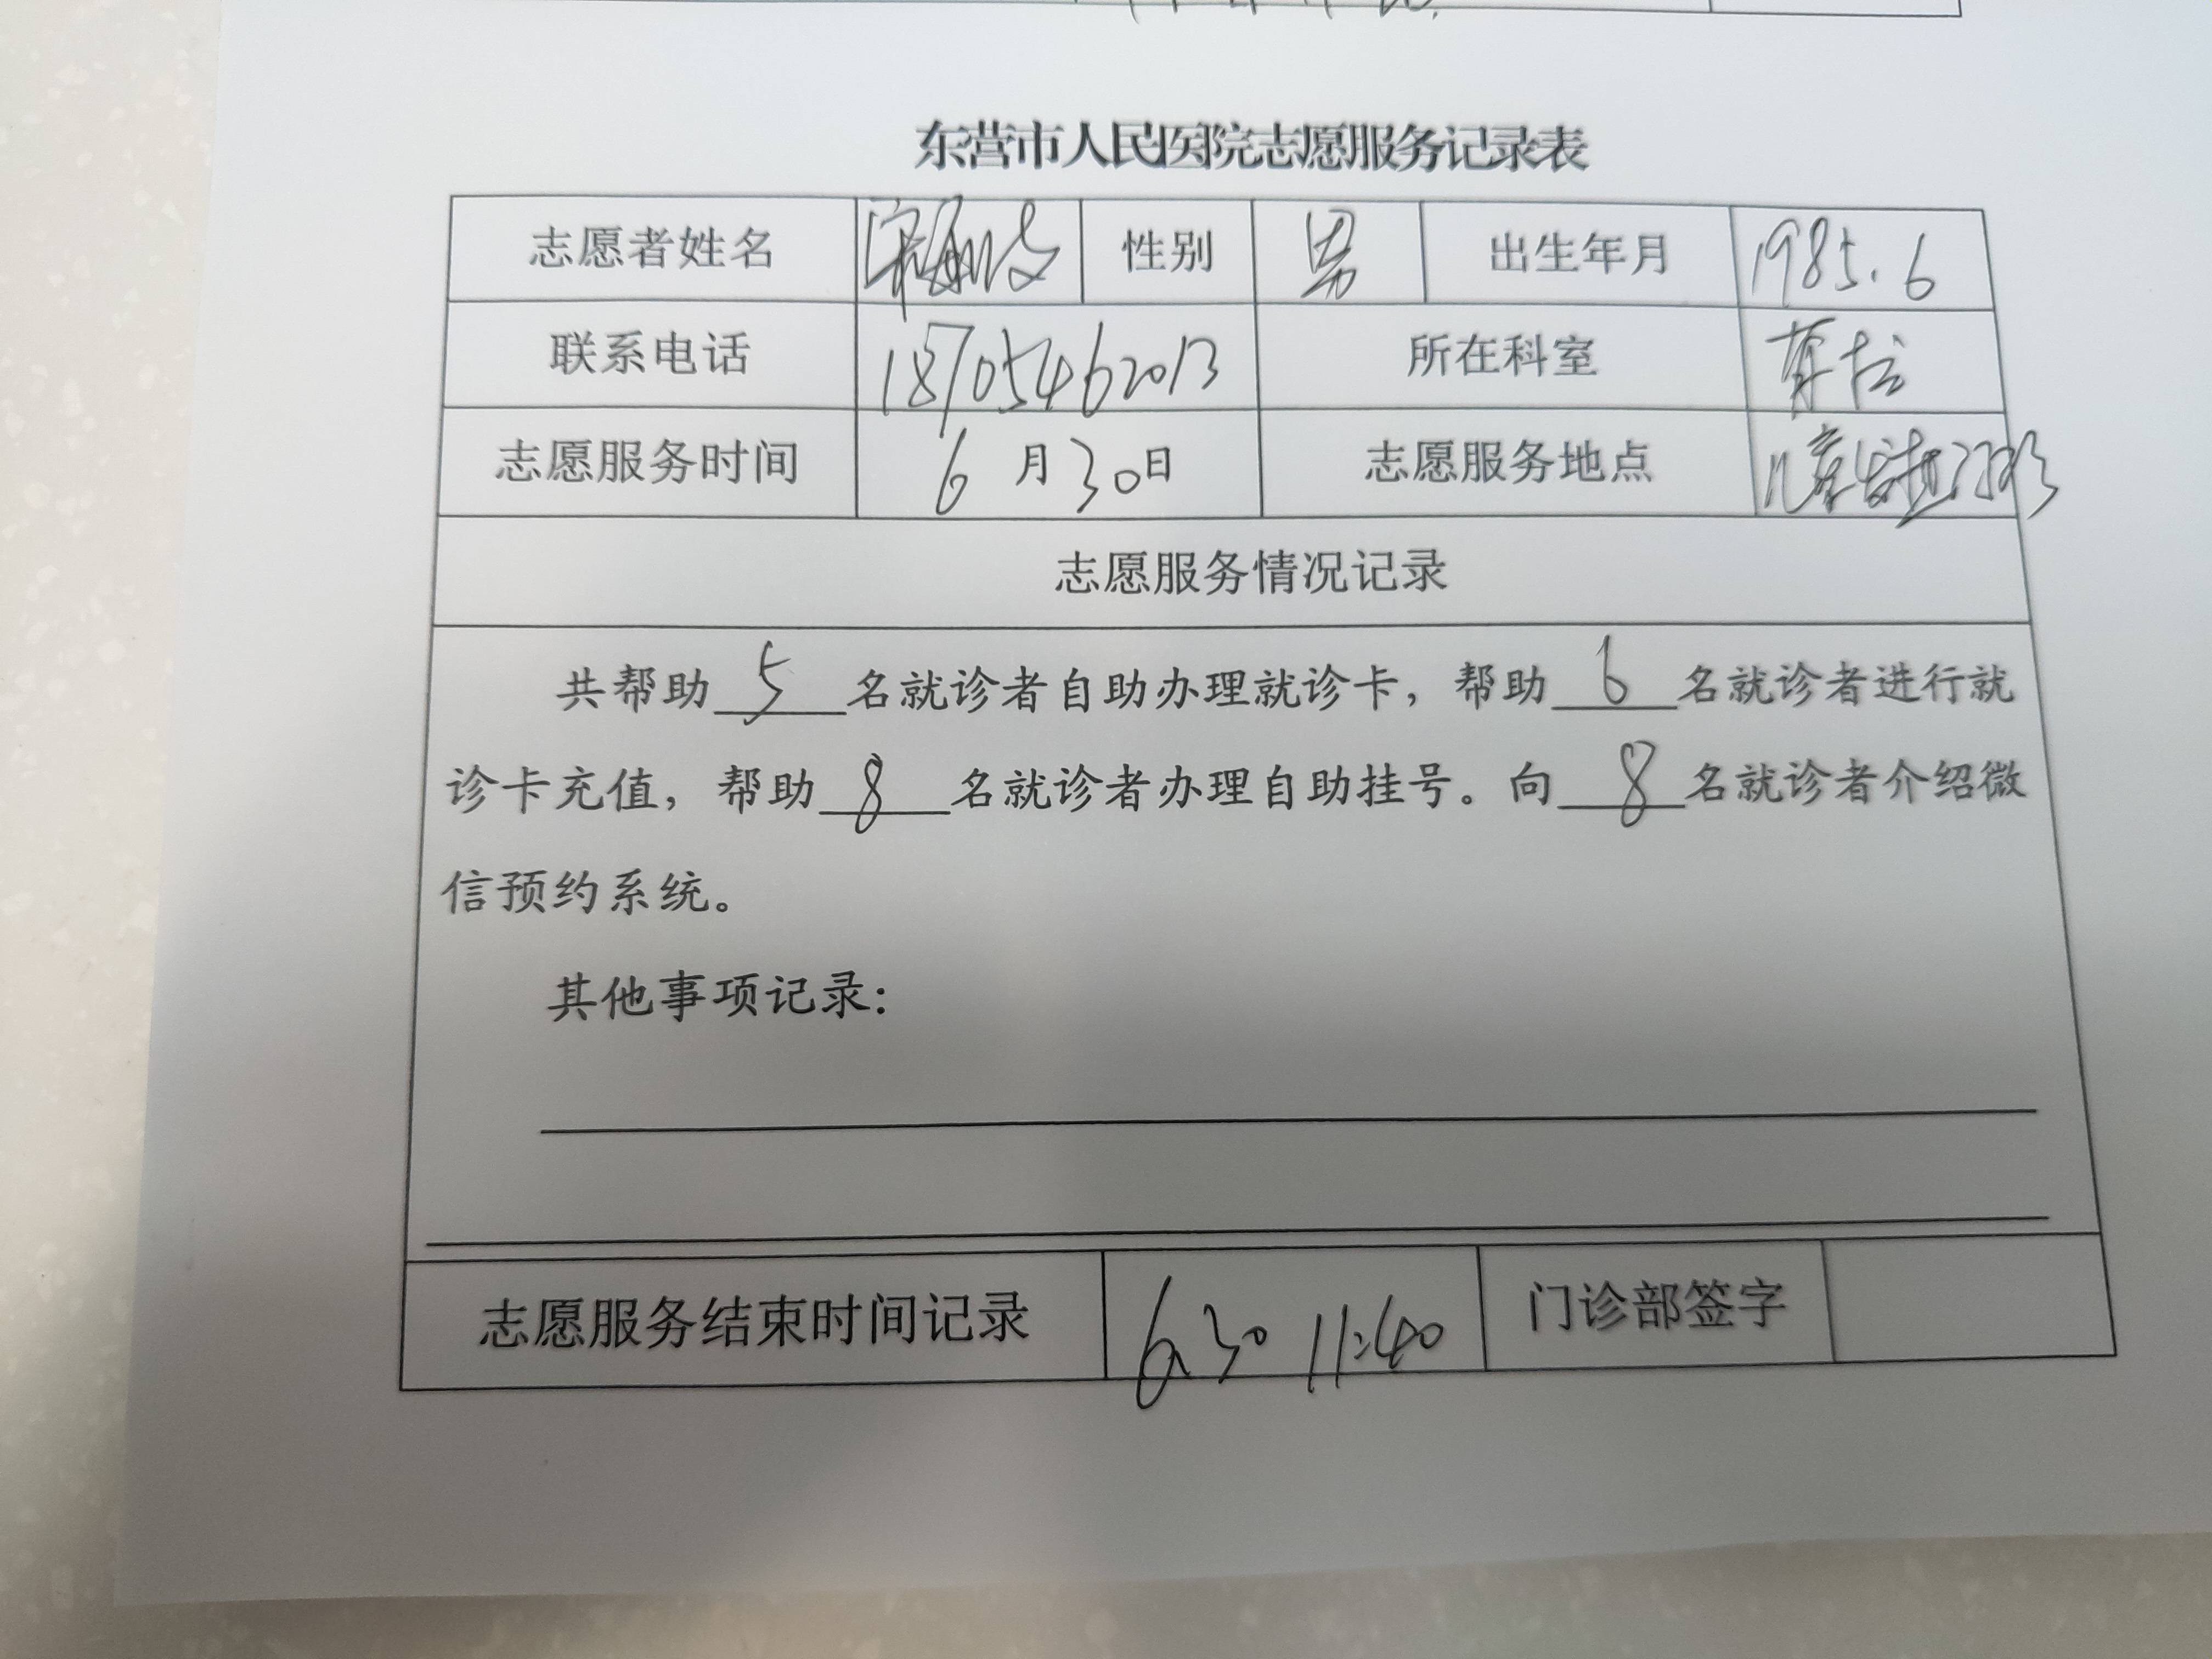 东营市人民医院志愿服务记录表
志愿者姓名 性别 男 出生年月 1985.6
联系电话 18705462013 所在科室
志愿服务时间 6月30日 志愿服务地点
志愿服务情况记录
共帮助 5 名就诊者自助办理就诊卡，帮助 6 名就诊者进行就
诊卡充值，帮助 8 名就诊者办理自助挂号。向 8 名就诊者介绍微
信预约系统。
其他事项记录：
志愿服务结束时间记录 6.30 11:40 门诊部签字